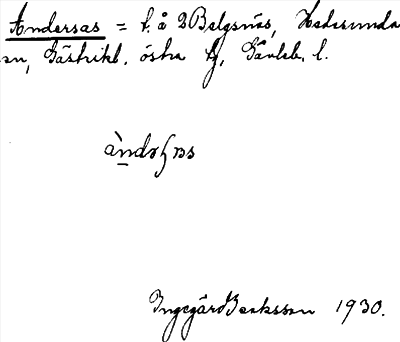 Andersas = t. å 2 Balgsnäs, Hedesunda
sn, Gästrikl. östra tg, Gävleb. l.
Ingegärd Isaksson 1930.